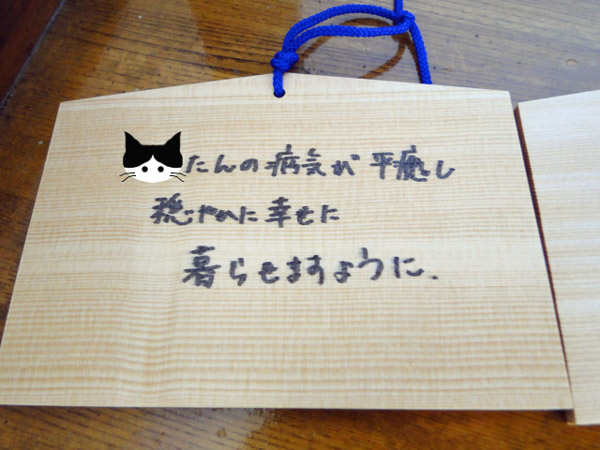 たんの病気が平癒し
穏やかに幸せに
暮らせますように.